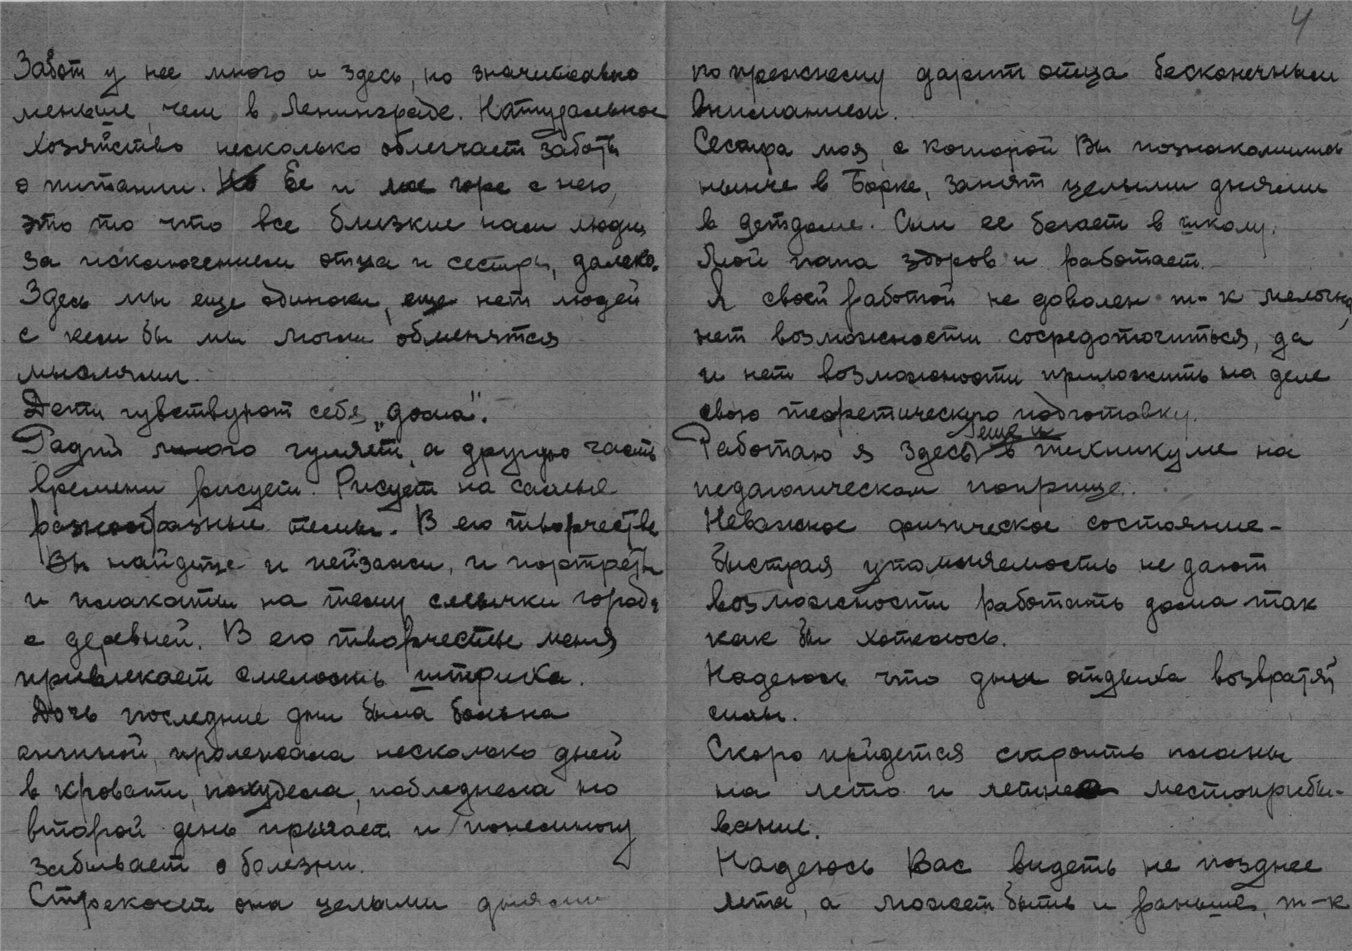 Забот у нее много и здесь, но значительно
меньше, чем в Ленинграде. Натуральное
хозяйство несколько облегчает заботы
о питании. Но Ее и мое горе с нею,
это то что все близкие нам люди,
за исключением отца и сестры, далеко.
Здесь мы еще одиноки, еще нет людей
с кем бы мы могли обменятся
мыслями.
Дети чувствуют себя „дома".
Радий много гуляет, а другую часть
времени рисует. Рисует на самые
разнообразные темы. В его творчестве
Вы найдете и пейзажи, и портреты
и плакаты на тему смычки города
с деревней. В его творчестве меня
привлекает смелость штриха.
Дочь последние дни была больна
ангиной, пролежала несколько дней
в кровати, похудела, побледнела но
второй день прыгает и понемногу
забывает о болезни.
Стрекочет она целыми днями
4
по прежнему дарит отца бесконечным
вниманием.
Сестра моя, с которой Вы познакомились
нынче в Борке, занят целыми днями
в детдоме. Сын ее бегает в школу.
Мой папа здоров и работает.
Я своей работой не доволен т-к мелочна,
нет возможности сосредоточиться, да
и нет возможности приложить на деле
свою теоретическую подготовку.
еще и
Работаю я здесь в техникуме на
педагогическом поприще.
Неважное физическое состояние -
быстрая утомляемость не дают
возможности работать дома так
как бы хотелось.
Надеюсь что дни отдыха возвратят
силы.
Скоро придется строить планы
на лето и летнее местопребы-
вание.
Надеюсь Вас видеть не позднее
лета, а может быть и раньше, т-к